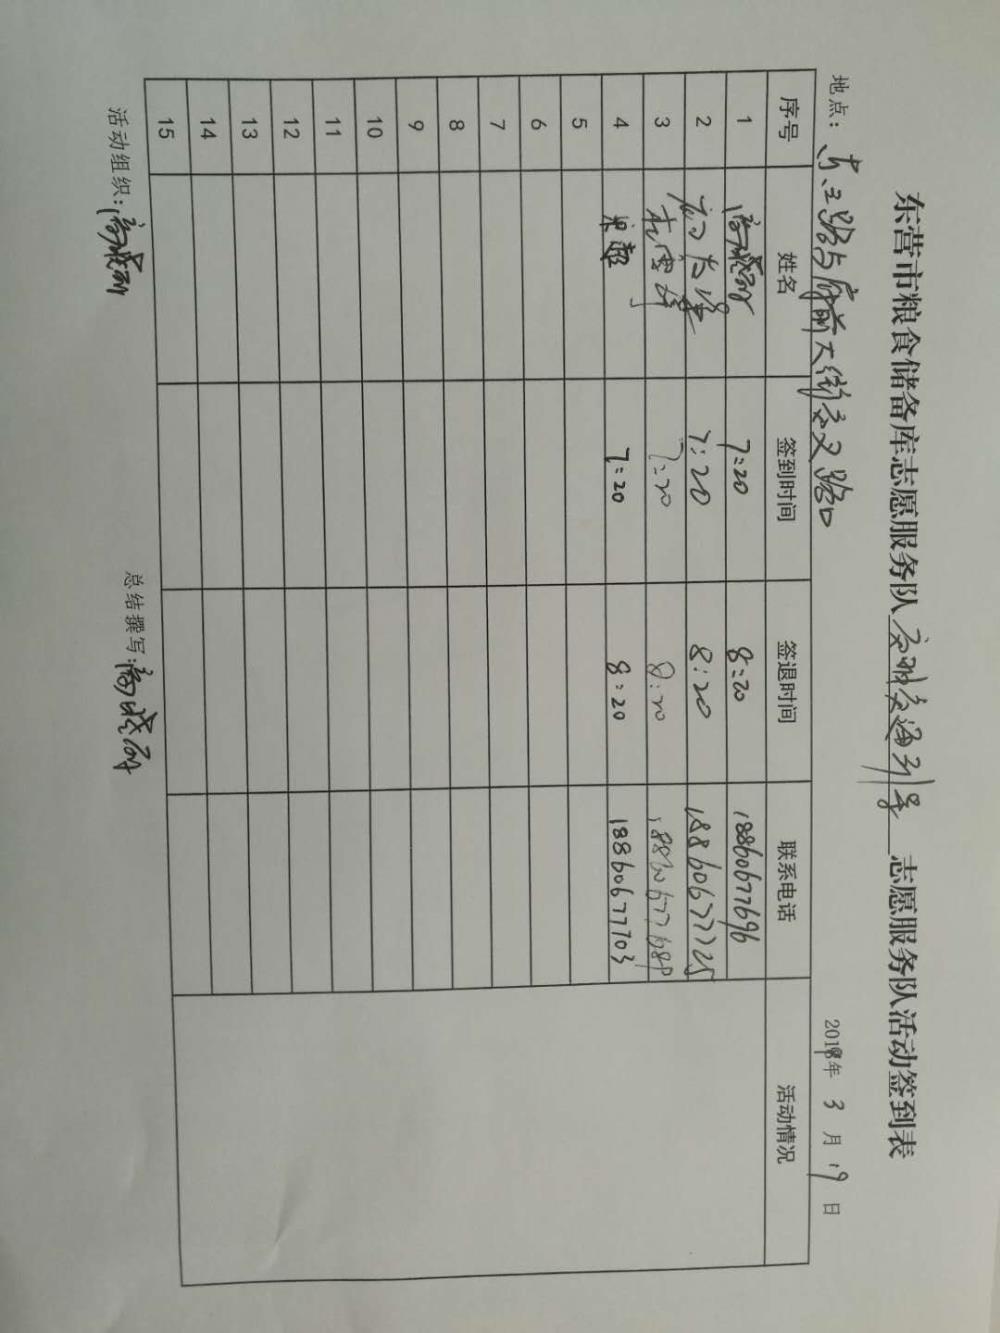 东营市粮食储备库志愿服务队文明交通引导志愿服务队活动签到表
地点：东三路与府前大街交叉路口 2018年 3 月 19 日
序号 姓名 签到时间 签退时间 联系电话 活动情况
1 7:20 8:20 18860677696
2 7:20 8:20 18860677725
3 7:20 8:20
4 米超 7:20 8:20 18860677703
5
6
7
8
9
10
11
12
13
14
15
活动组织： 总结撰写：